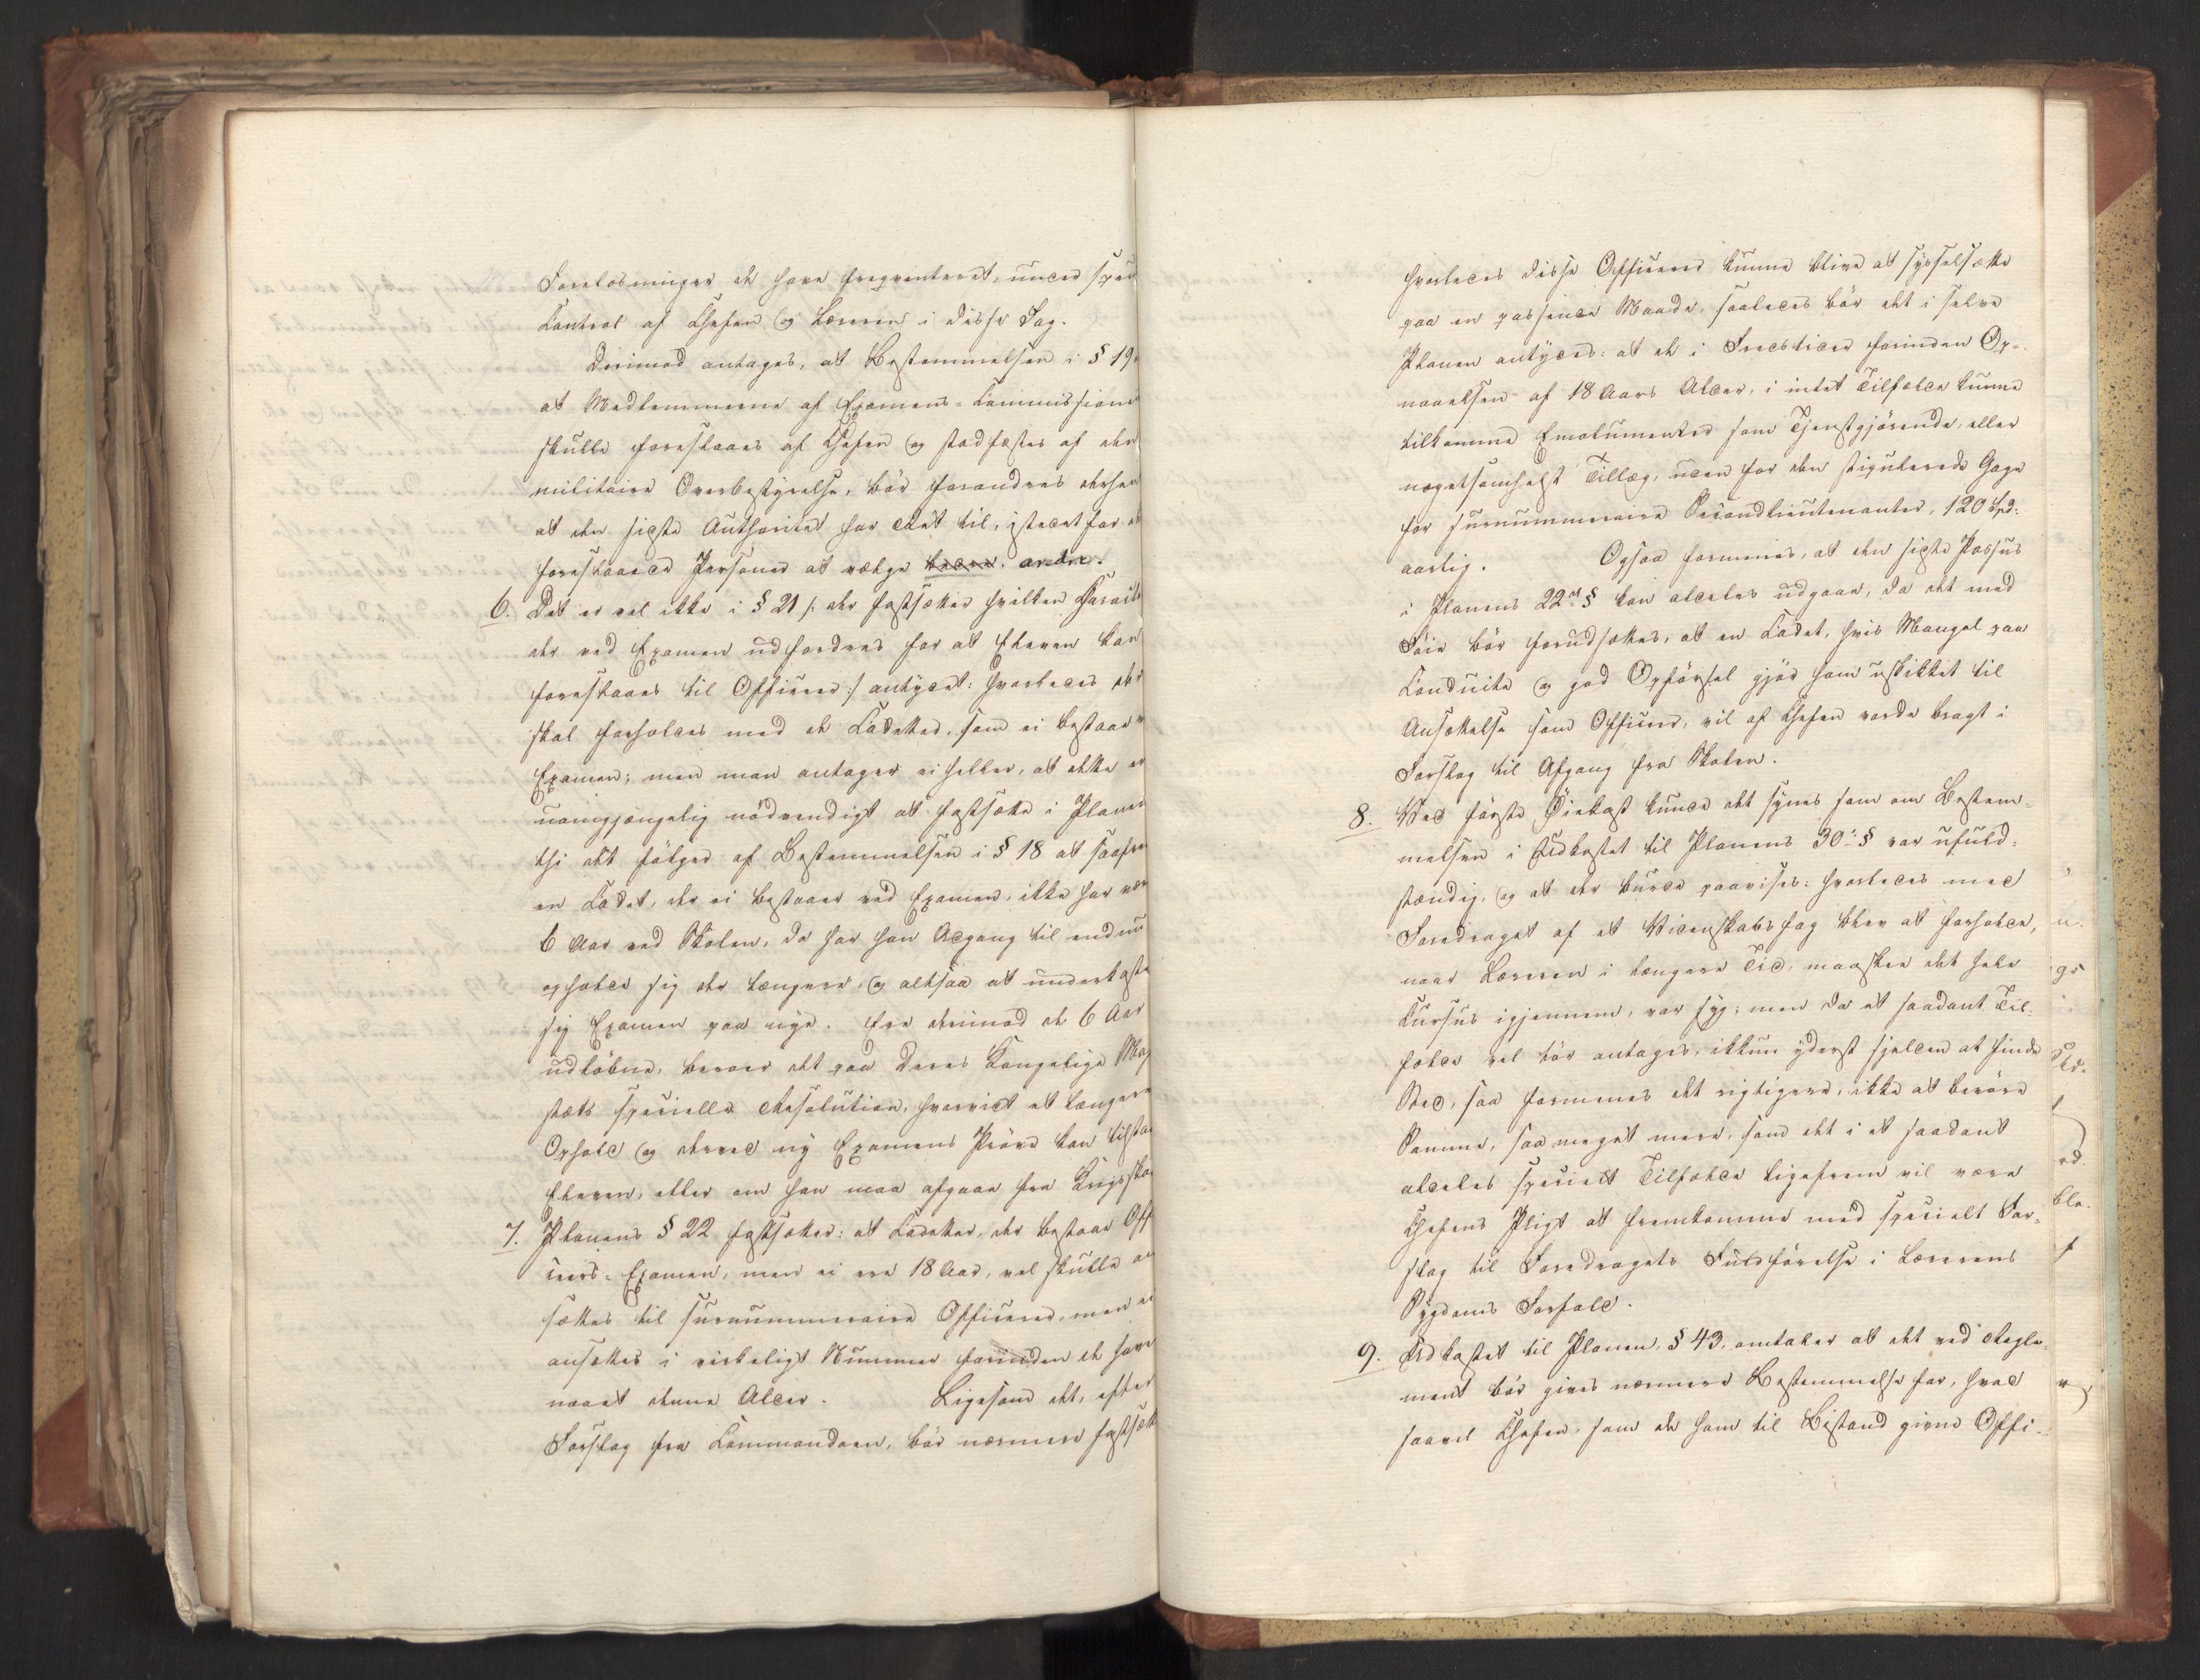 Forelæsninger de have freqventeret, under spec
Control af Chefen og Læreren i disse Fag.
Derimod antages, at Bestemmelsen i § 19,
at Medlemmerne af Examens-Commissionen
skulle foreslaaes af Chefen og stadfæstes af den
militaire Overbestyrelse, bør forandres derhen
at den sidste Authoritet har Ret til, istedetfor de
foreslaaede Personer at vælge andre.
6. Det er vel ikke i § 21 /: der fastsætter hvilken Charact
der ved Examen udfordres for at Eleven kan
foreslaaes til Officeer :/ antydet: hvorledes der
skal forholdes med de Cadetter, som ei bestaae
Examen; men man antager ei heller, at dette er
uomgjængelig nødvendigt at fastsætte i Planen
thi det følger af Bestemmelsen i § 18 at saafre
en Cadet, der ei bestaaer ved Examen, ikke har vær
6 Aar ved Skolen, da har han Adgang til endnu
opholde sig der længere, og altsaa at underkaste
sig Examen paa nye. Ere derimod de 6 Aar
udløbne, beroer det paa Deres Kongelige Maj
stæts specielle Resolution, hvorvidt et længere
Ophold og derved ny Examens Prøve kan tilstaa
Eleven, eller om han maa afgaae fra Krigssko
7. Planens § 22 fastsætter: at Cadetter, der bestaae Off
ceers-Examen, men ei ere 18 Aar, vel skulle an
sættes til surnummeraire Officerer, men ei
ansættes i virkeligt Nummer forinden de have
naaet denne Alder. Ligesom det, efter
Forslag fra Commandoen, bør nærmere fastsætt
hvorledes disse Officerer kunne blive at sysselsætte
paa en passende Maade, saaledes bør det i selve
Planen antydes: at de i Fredstider forinden Op-
naaelsen af 18 Aars Alder, i intet Tilfælde kunne
tilkomme Emolumenter som Tjenstgjørende, eller
nogetsomhelst Tillæg, uden for den stipulerede Gage
for surnummeraire Secondlieutenanter, 120 Spd.
aarlig. Ogsaa formenes, at den sidste Passus
i Planens 22de § kan aldeles udgaae, da det med
Føie bør forudsættes, at en Cadet, hvis Mangel paa
Conduite og god Opførsel gjør ham uskikket til
Ansættelse som Officeer, vil af Chefen vorde bragt i
Forslag til Afgang fra Skolen.
8. Ved første Øiekast kunde det synes som om Bestem-
melsen i Udkastet til Planens 30te § var ufuld-
stændig, og at der burde paavises: hvorledes med
Foredraget af et Videnskabsfag blev at forholde,
naar Læreren i længere Tid, maaskee det hele
Cursus igjennem, var syg; men da et saadant Til-
fælde vel tør antages, ikkun yderst sjelden at finde
Sted, saa formenes det rigtigere, ikke at berøre
Samme, saa meget mere, som det i et saadant
aldeles specielt Tilfælde ligefrem vil være
Chefens Pligt at fremkomme med specielt For-
slag til Foredragets Fuldførelse i Lærerens
Sygdoms Forfald.
9. Udkastet til Planen, § 43, omtaler at det ved Regle-
ment bør gives nærmere Bestemmelse for, hvad
saavel Chefen, som de ham til Bistand givne Offi-